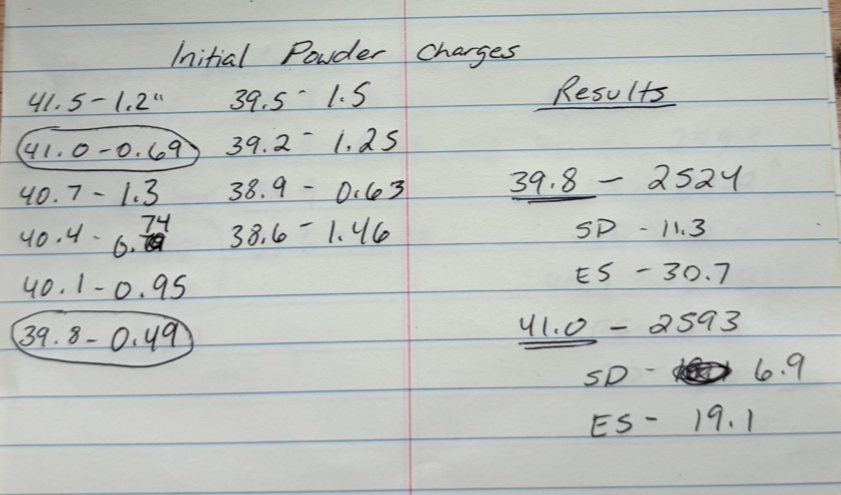 Initial Powder Charges
41.5 - 1.2"
41.0 - 0.69
40.7 - 1.3
40.4 - 0.74
40.1 - 0.95
39.8 - 0.49
39.5 - 1.5
39.2 - 1.25
38.9 - 0.63
38.6 - 1.46
Results
39.8 - 2524
SD - 11.3
ES - 30.7
41.0 - 2593
SD - 6.9
ES - 19.1